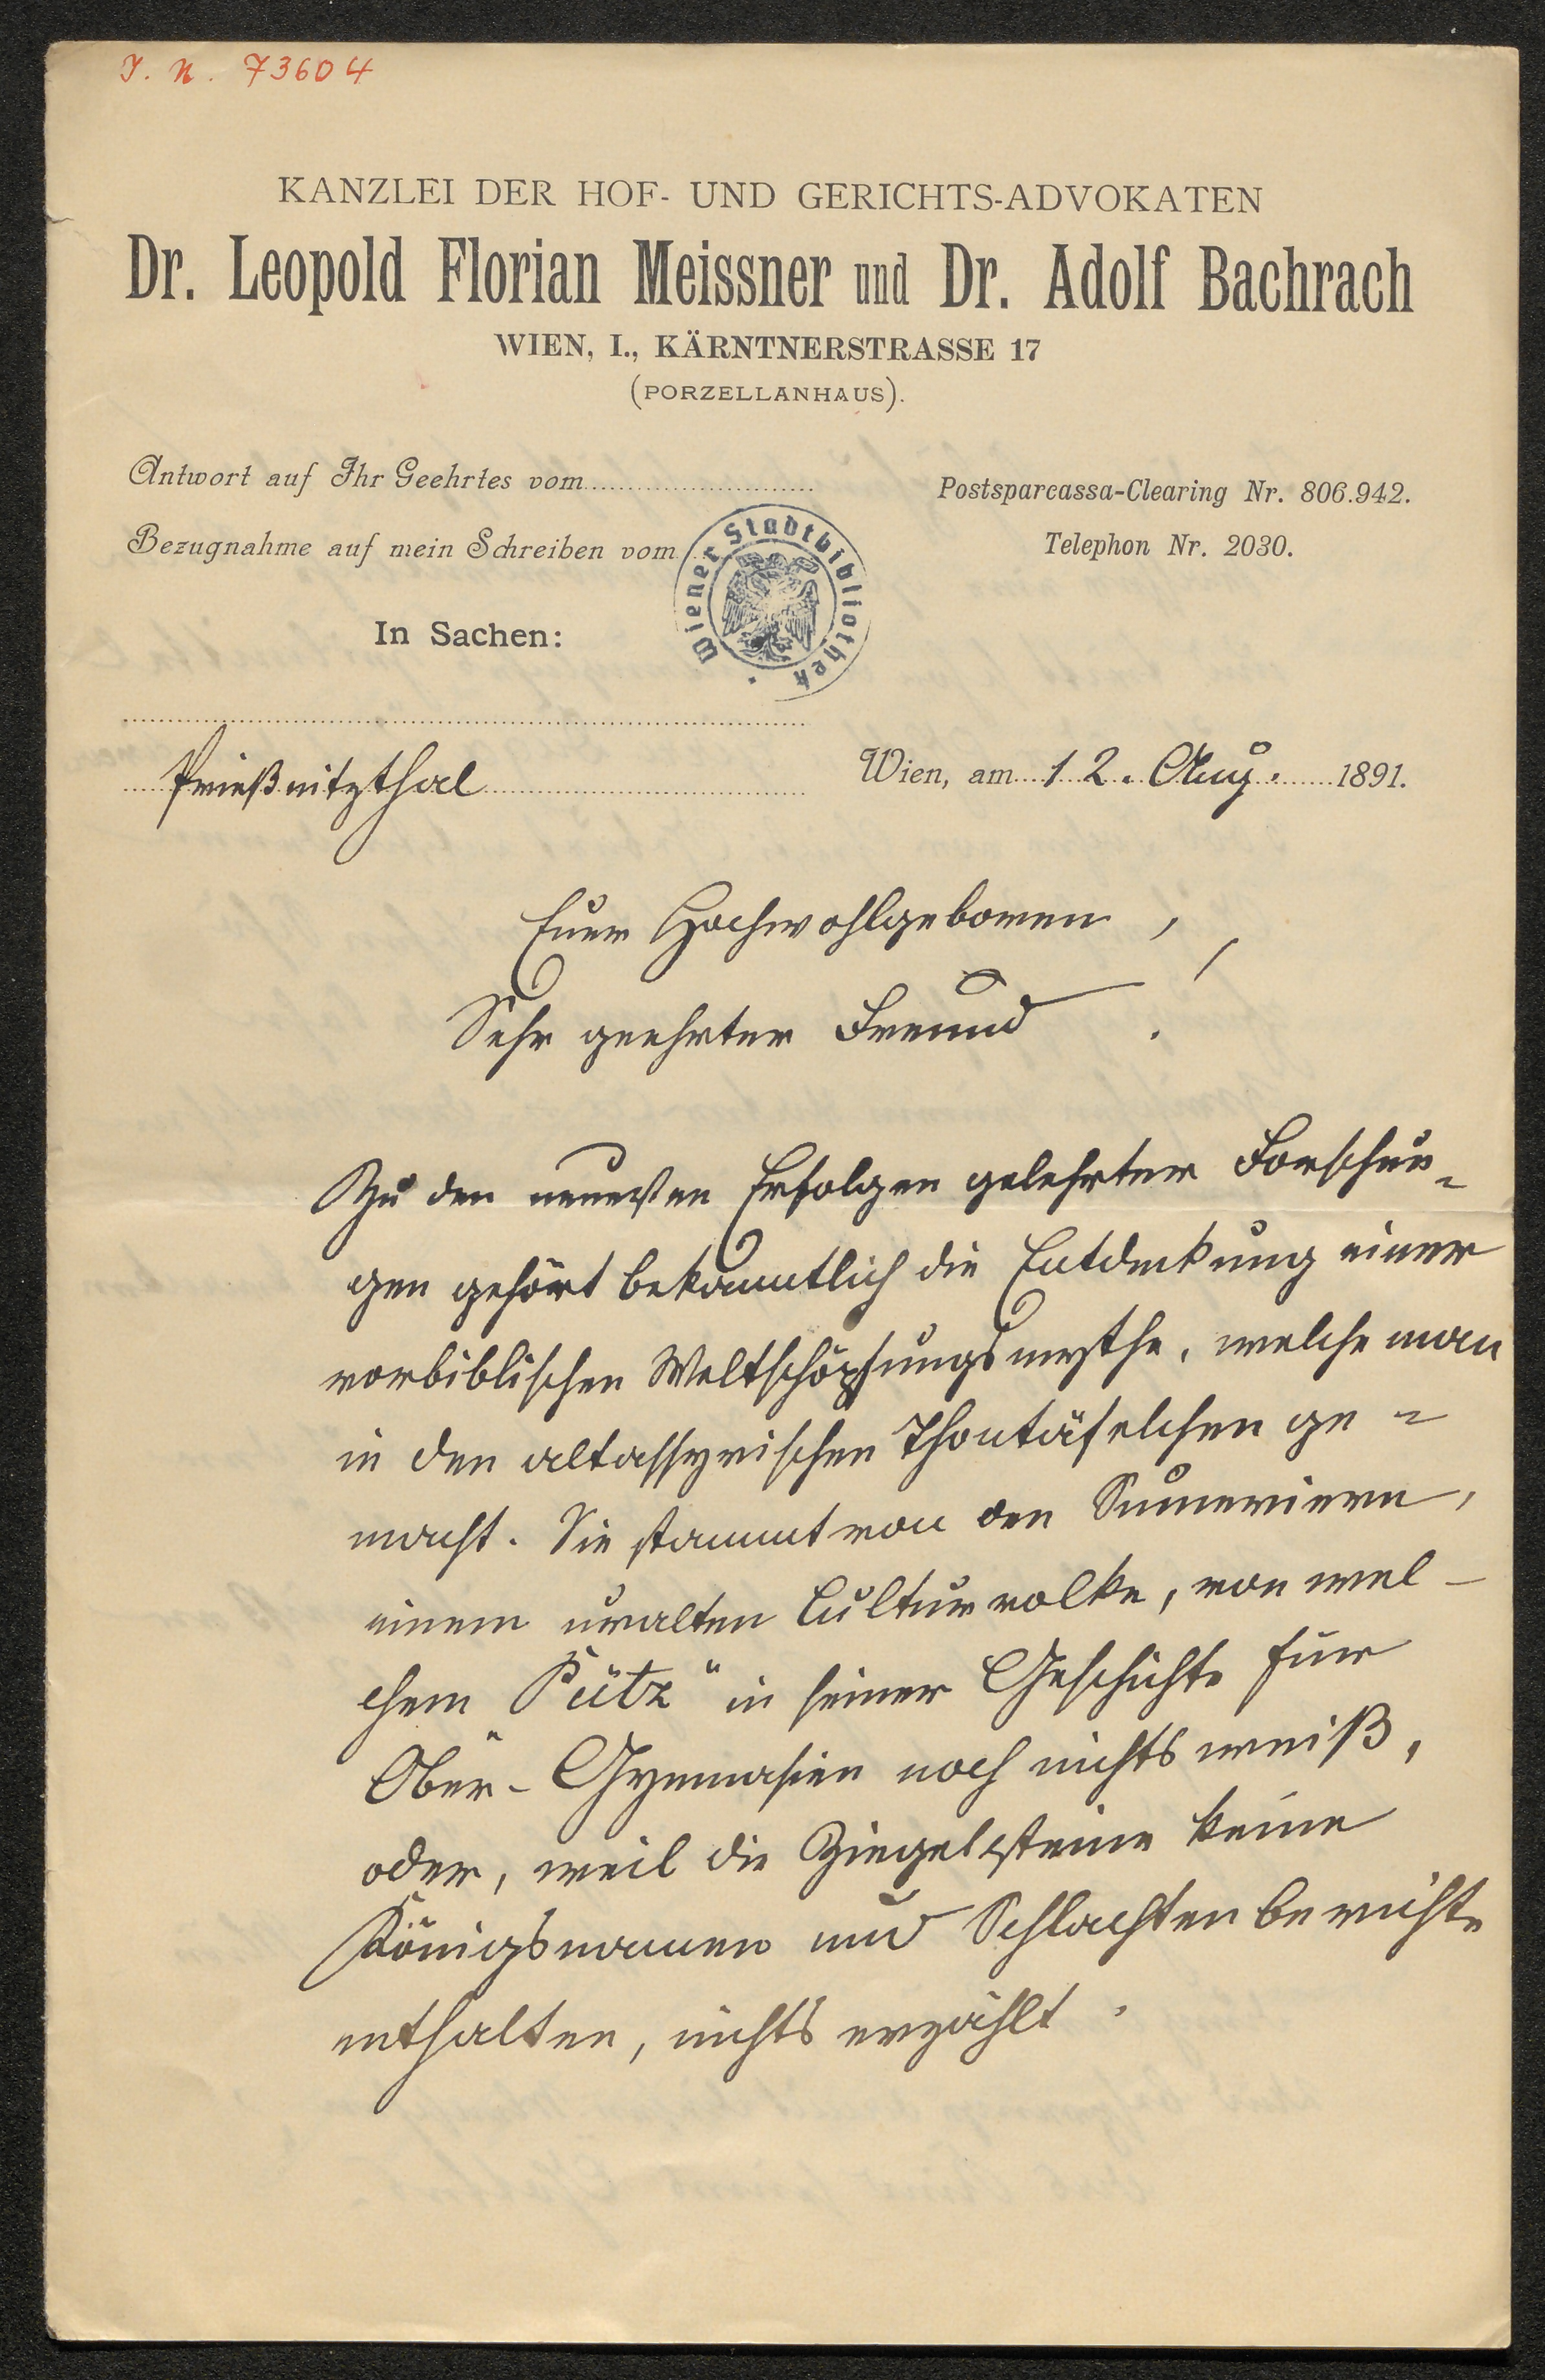 J. N. 73604
KANZLEI DER HOF- UND GERICHTS-ADVOKATEN
Dr. Leopold Florian Meissner und Dr. Adolf Bachrach
WIEN, I., KÄRNTNERSTRASSE 17
(PORZELLANHAUS).
Antwort auf Ihr Geehrtes vom
Postsparcassa-Clearing Nr. 806.942.
Bezugnahme auf mein Schreiben vom
Telephon Nr. 2030.
Wiener Stadtbibliothek
In Sachen:
Prießnitzthal
Wien, am 12. Aug. 1891.
Euer Hochwohlgeboren,
Sehr geehrter Freund!
Zu den neuesten Erfolgen gelehrter Forschun-
gen gehört bekanntlich die Entdeckung einer
vorbiblischen Weltschöpfungsmythe, welche man
in den altassyrischen Thontäfelchen ge-
macht. Sie stammt von den Sumeriern,
einem uralten Culturvolke, von wel-
chem „Pütz" in seiner Geschichte für
Ober-Gymnasien noch nichts weiß,
oder, weil die Ziegelsteine keine
Königsnamen und Schlachtenberichte
enthalten, nichts erzählt.